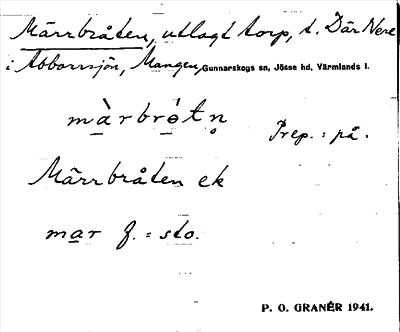 Märrbråten, utlagt torp, t. Där Nere
i Abborrsjön, Mangen, Gunnarskogs sn, Jösse hd, Värmlands l.
màrbrótn̥
Prep.: på.
Märrbråten ek
mar f. = sto.
P. O. GRANÉR 1941.